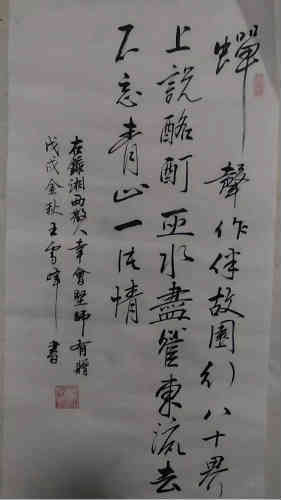 蟬聲作伴故園行八十界
上說酩酊巫水盡管東流去
不忘青山一片情
在蘇湘西散人幸會堅师有贈
戊戌金秋王雪峰書